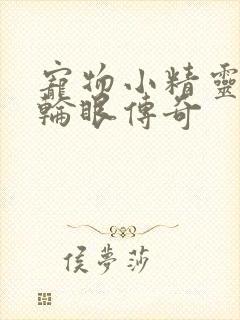 寵物小精靈
輪眼傳奇
侯夢莎